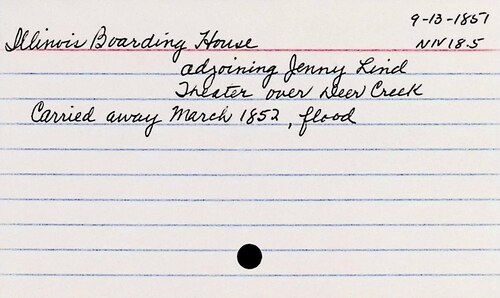 9-13-1851
Illinois Boarding House NIV18.5
adjoining Jenny Lind
Theater over Deer Creek
Carried away March 1852, flood